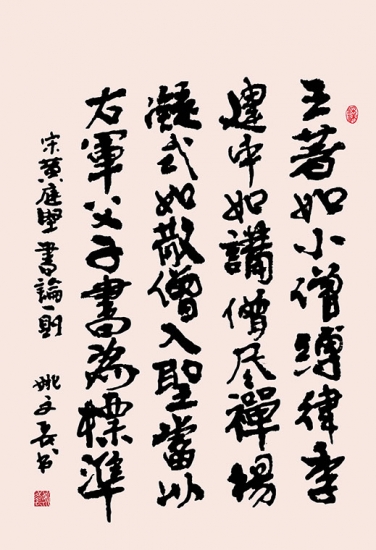 王著如小僧缚律李
建中如講僧尽禪楊
凝式如散僧入聖當以
右軍父子書為標準
宋黄庭堅書論一則
姚文長书